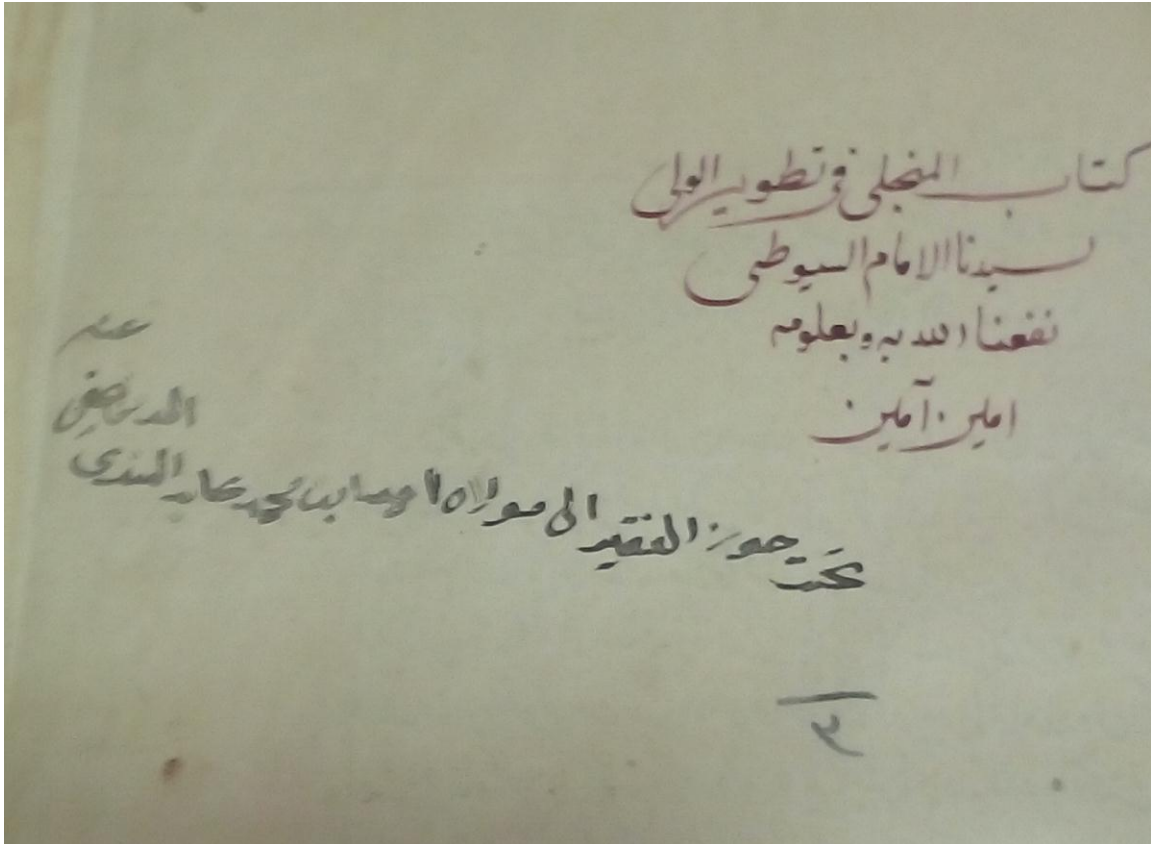 كتاب المنجلى فى تطوير الولى
لسيدنا الامام السيوطى
نفعنا الله به وبعلومه
امين آمين
تحت حوز الفقير الى مولاه احمد ابن محمد عابد الهندى
عنه
٣